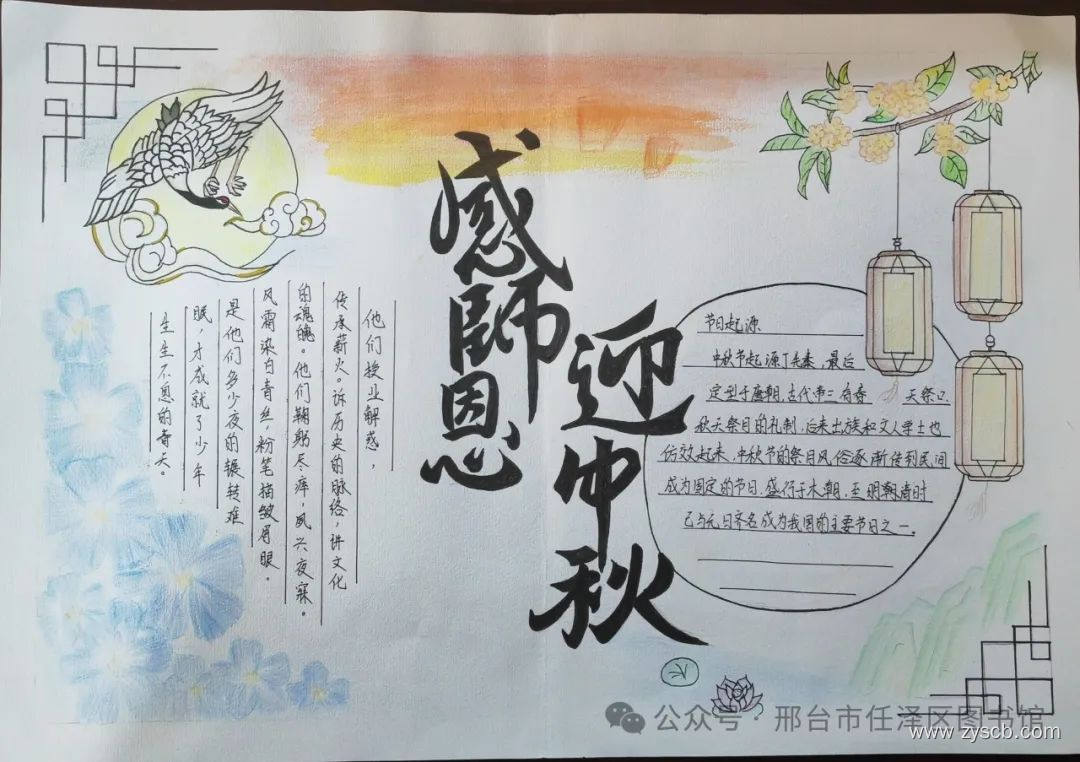 感師恩
迎中秋
他们授业解惑，
传承薪火。诉历史的脉络，讲文化
的魂魄。他们鞠躬尽瘁，夙兴夜寐。
风霜染白青丝，粉笔描皱眉眼。
是他们多少夜的辗转难
眠，才成就了少年
生生不息的春天。
节日起源
中秋节起源于先秦，最后
定型于唐朝，古代帝 有春 天祭
秋天祭月的礼制，后来 族和文人学士也
仿效起来，中秋节的祭月风俗逐渐传到民间
成为固定的节日，盛行于 朝，至明朝清时
已与元日齐名成为我国的主要节日之一。
公众号 · 邢台市任泽区图书馆
www.zyscb.com